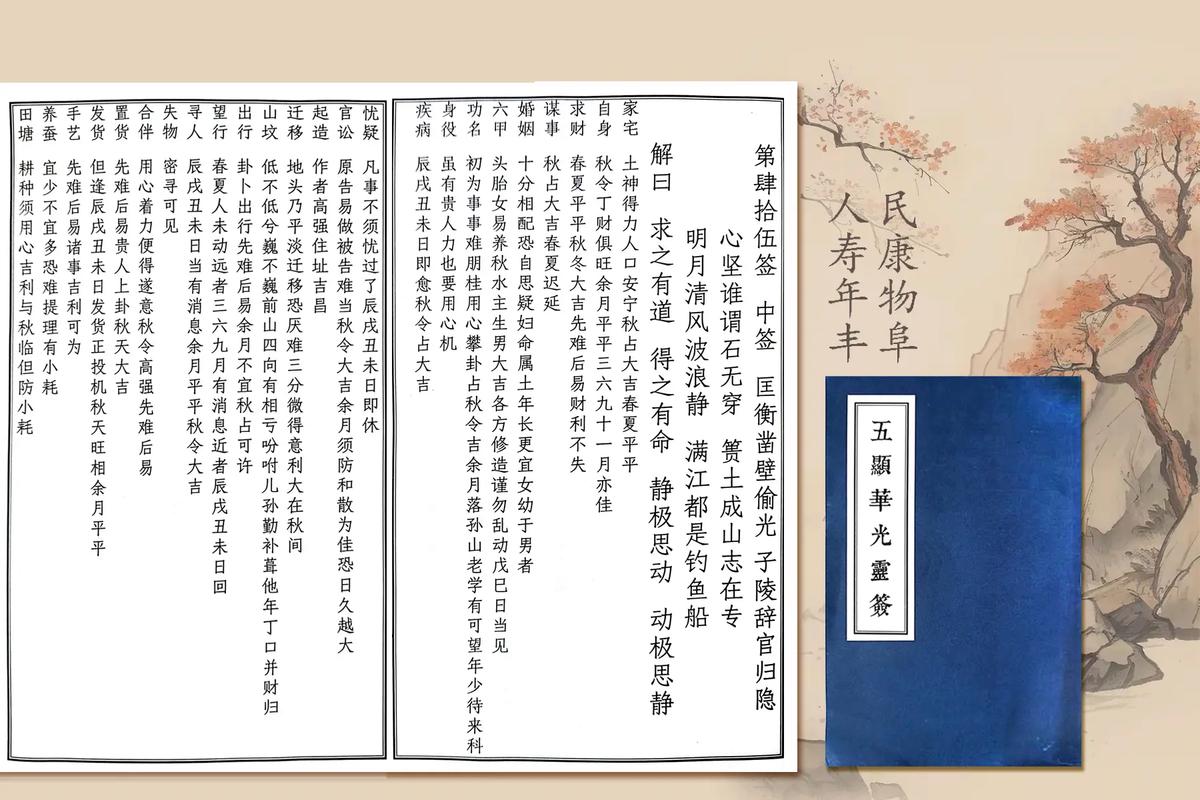 第肆拾伍签 中签 匡衡凿壁偷光 子陵辞官归隐
心坚谁谓石无穿 篑土成山志在专
明月清风波浪静 满江都是钓鱼船
解曰 求之有道 得之有命 静极思动 动极思静
家宅 土神得力人口安宁秋占大吉春夏平平
自身 秋令丁财俱旺余月平平三六九十一月亦佳
求财 春夏平平秋冬大吉先难后易财利不失
谋事 秋占大吉春夏迟延
婚姻 十分相配恐自思疑妇命属土年长更宜女幼于男者
六甲 头胎女易养秋水主生男大吉各方修造谨勿乱动戊巳日当见
功名 初为事事难朋桂用心攀卦占秋令吉余月落孙山老学有可望年少待来科
身役 虽有贵人力也要用心机
疾病 辰戌丑未日即愈秋令占大吉
忧疑 凡事不须忧过了辰戌丑未日即休
官讼 原告易做被告难当秋令大吉余月须防和散为佳恐日久越大
起造 作者高强住址吉昌
迁移 地头乃平淡迁移恐厌难三分微得意利大在秋间
山坟 低不低兮巍不巍前山四向有相亏吩咐儿孙勤补葺他年丁口并财归
出行 卦卜出行先难后易余月不宜秋占可许
望行 春夏人未动远者三六九月有消息近者辰戌丑未日回
寻人 辰戌丑未日当有消息余月平平秋令大吉
失物 密寻可见
合伴 用心着力便得遂意秋令高强先难后易
置货 先难后易贵人上卦秋天大吉
发货 但逢辰戌丑未日发货正投机秋天旺相余月平平
手艺 先难后易诸事吉利可为
养蚕 宜少不宜多恐难提理有小耗
田塘 耕种须用心吉利与秋临但防小耗
民康物阜
人寿年丰
五顯華光靈簽